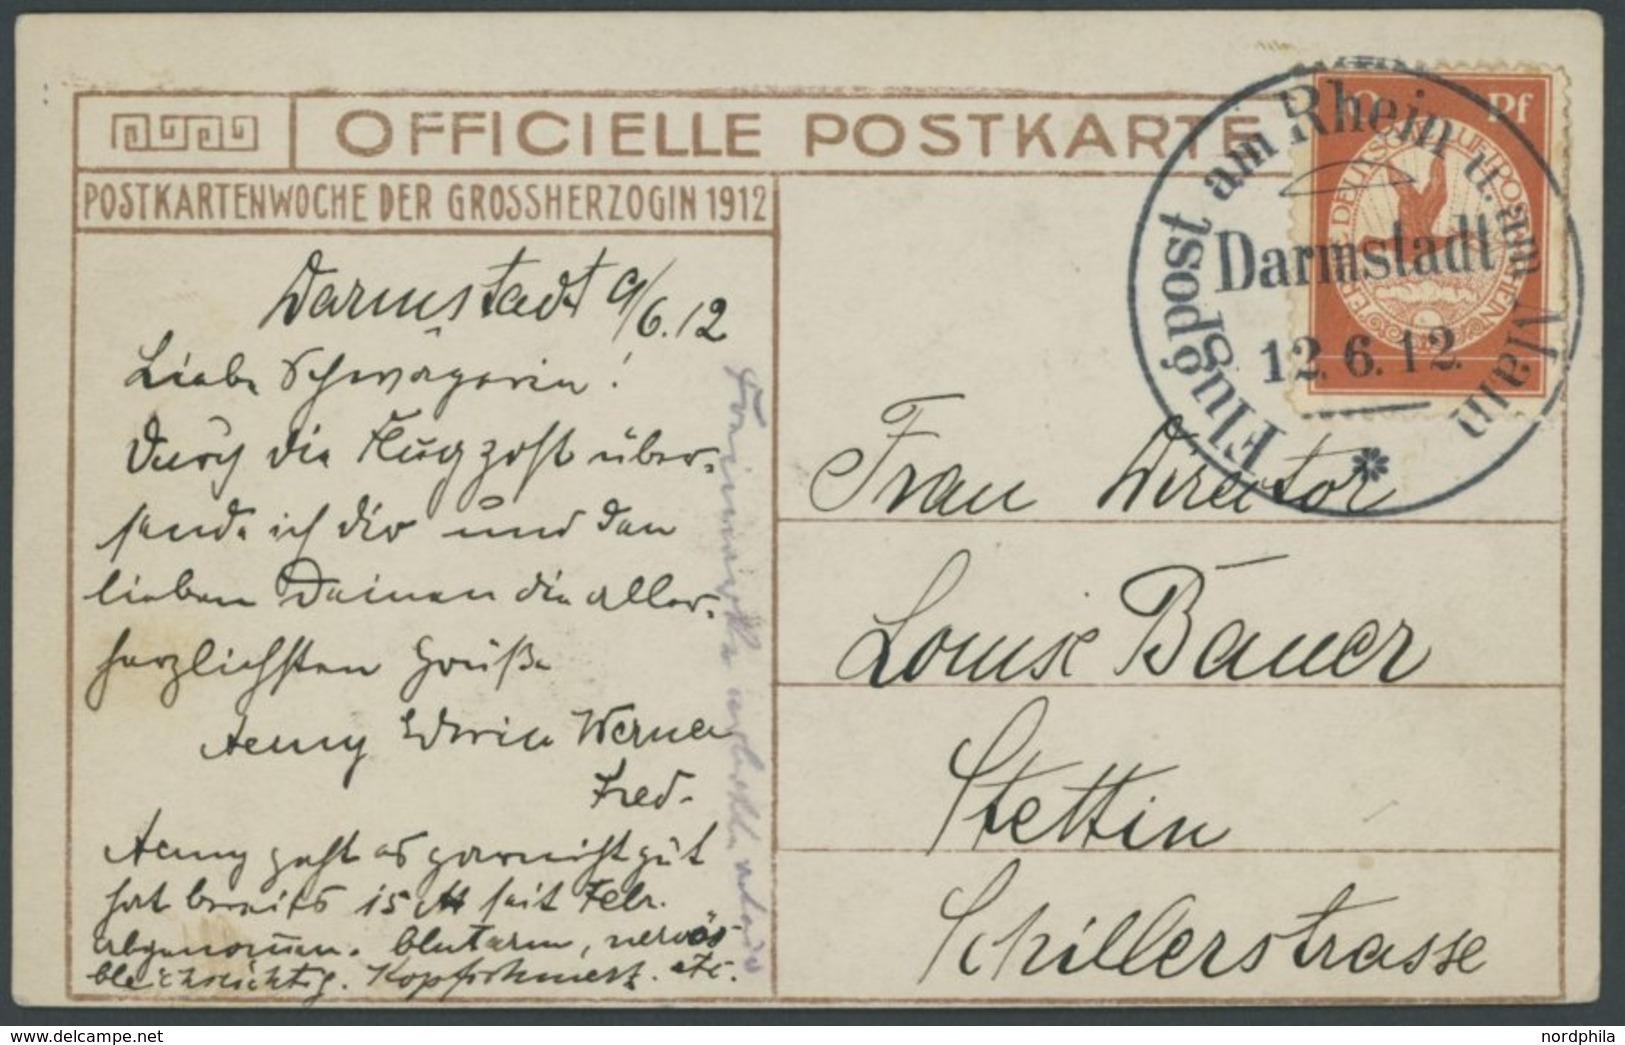 OFFICIELLE POSTKARTE
POSTKARTENWOCHE DER GROSSHERZOGIN 1912
Flugpost am Rhein u. am Main
Darmstadt
12.6.12.
Pf
Darmstadt 9/6.12
Liebe Schwägerin!
Durch die Flugpost über-
sende ich dir und den
lieben Deinen die aller-
herzlichsten Grüße
Aenny Edwin Werner
Fred.
Aenny geht es garnicht gut
hat bereits 15 seit Febr.
abgenommen. blutarm, nervös
bleichsüchtig. Kopfschmerz. etc.
Frau Director
Louise Bauer
Stettin
Schillerstrasse
nordphila